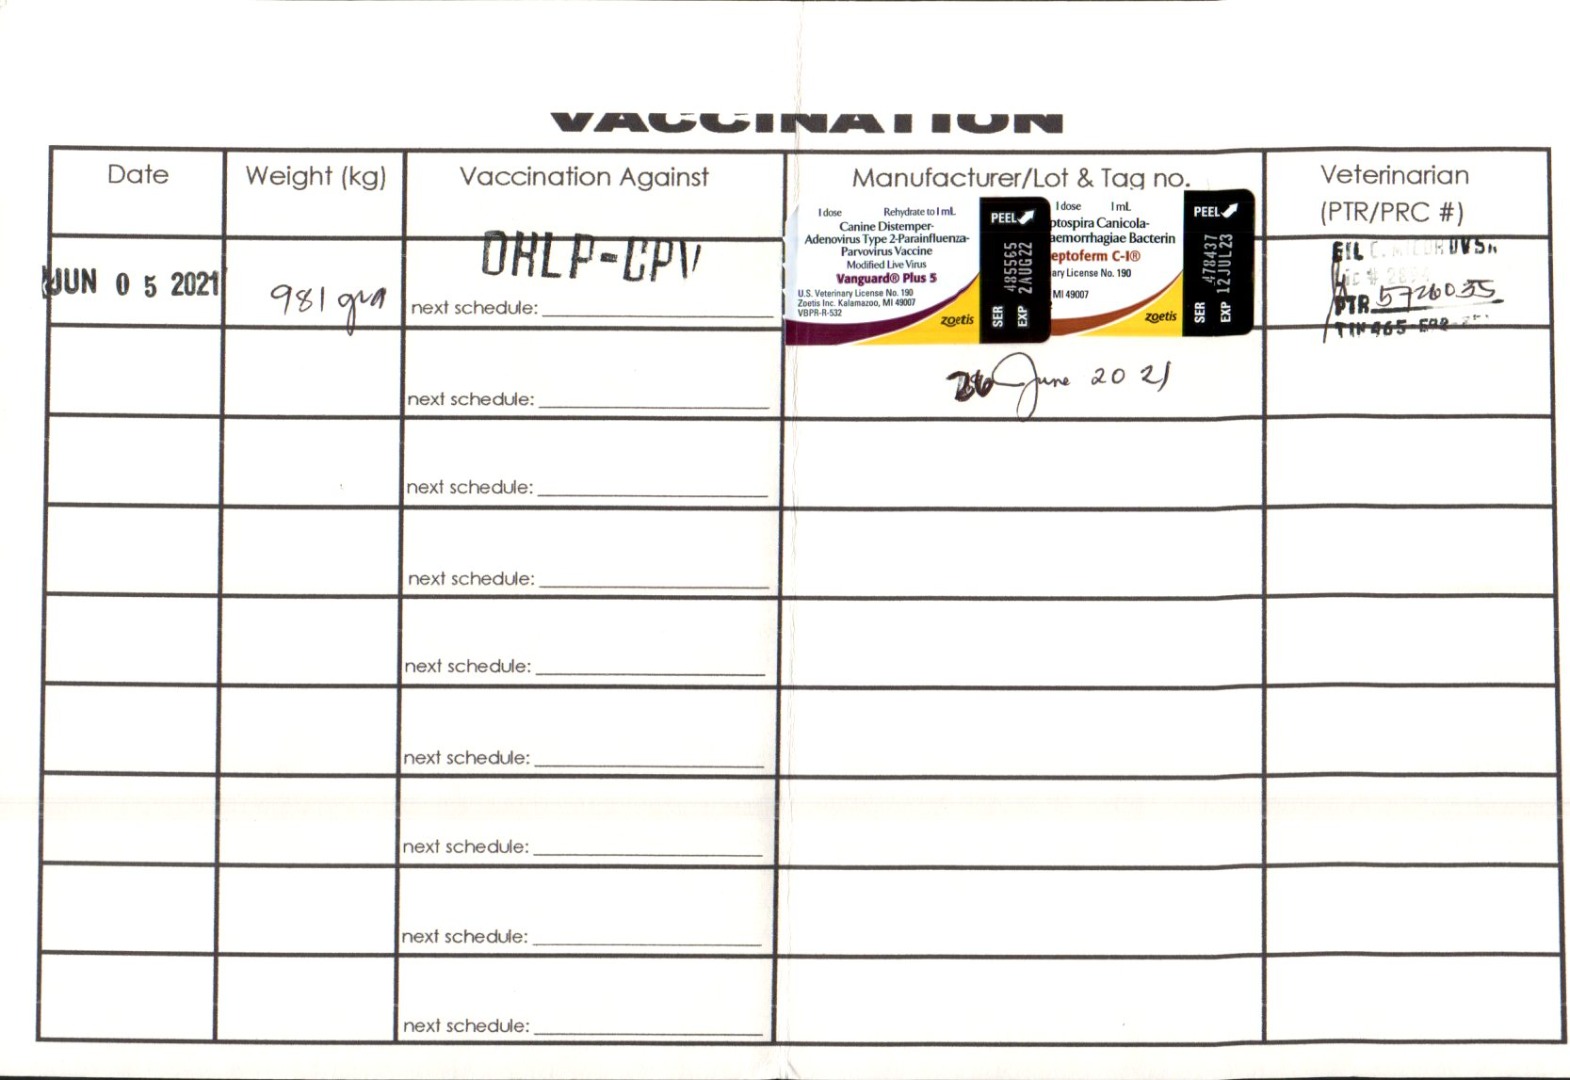 VACCINATION
Date
Weight (kg)
Vaccination Against
Manufacturer/Lot & Tag no.
Veterinarian
(PTR/PRC #)
JUN 05 2021
981 gra
DHLP-CPV
next schedule:
1 dose Rehydrate to 1 mL
Canine Distemper-
Adenovirus Type 2-Parainfluenza-
Parvovirus Vaccine
Modified Live Virus
Vanguard® Plus 5
U.S. Veterinary License No. 190
Zoetis Inc. Kalamazoo, MI 49007
VBPR-R-532
zoetis
PEEL
SER 485565
EXP 2AUG22
1 dose 1 mL
ptospira Canicola-
aemorrhagiae Bacterin
eptoferm C-I®
ary License No. 190
MI 49007
zoetis
PEEL
SER 478437
EXP 12JUL23
PTR 5726035
TIN 465-
next schedule:
June 2021
next schedule:
next schedule:
next schedule:
next schedule:
next schedule:
next schedule:
next schedule: